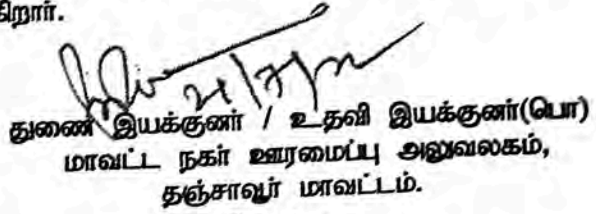 கிறார்.
துணை இயக்குனர் / உதவி இயக்குனர்(பொ)
மாவட்ட நகர் ஊரமைப்பு அலுவலகம்,
தஞ்சாவூர் மாவட்டம்.